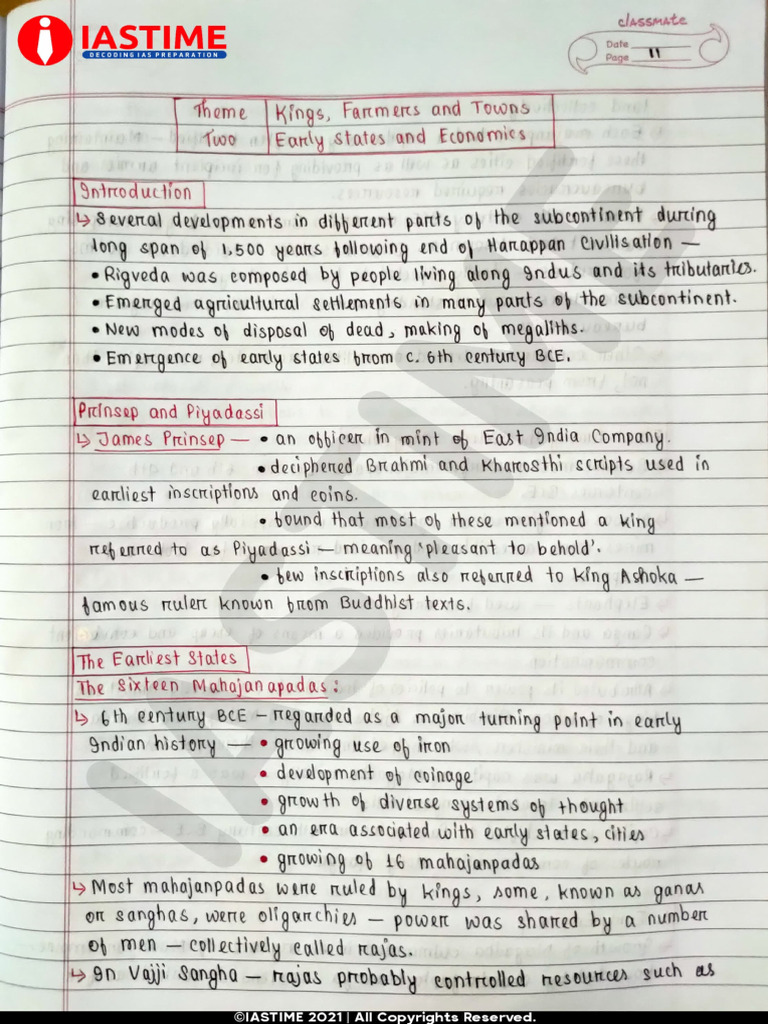 IASTIME
DECODING IAS PREPARATION
classmate
Date
Page 11
Theme Two | Kings, Farmers and Towns
Early States and Economics
Introduction
↳ Several developments in different parts of the subcontinent during
long span of 1,500 years following end of Harappan Civilisation —
• Rigveda was composed by people living along Indus and its tributaries.
• Emerged agricultural settlements in many parts of the subcontinent.
• New modes of disposal of dead, making of megaliths.
• Emergence of early states from c. 6th century BCE.
Prinsep and Piyadassi
↳ James Prinsep — • an officer in mint of East India Company.
• deciphered Brahmi and Kharosthi scripts used in
earliest inscriptions and coins.
• found that most of these mentioned a king
referred to as Piyadassi — meaning 'pleasant to behold'.
• few inscriptions also referred to king Ashoka —
famous ruler known from Buddhist texts.
The Earliest States
The Sixteen Mahajanapadas :
↳ 6th century BCE — regarded as a major turning point in early
Indian history — • growing use of iron
• development of coinage
• growth of diverse systems of thought
• an era associated with early states, cities
• growing of 16 mahajanpadas
↳ Most mahajanpadas were ruled by kings, some, known as ganas
or sanghas, were oligarchies — power was shared by a number
of men — collectively called rajas.
↳ In Vajji Sangha — rajas probably controlled resources such as
IASTIME
©IASTIME 2021 | All Copyrights Reserved.